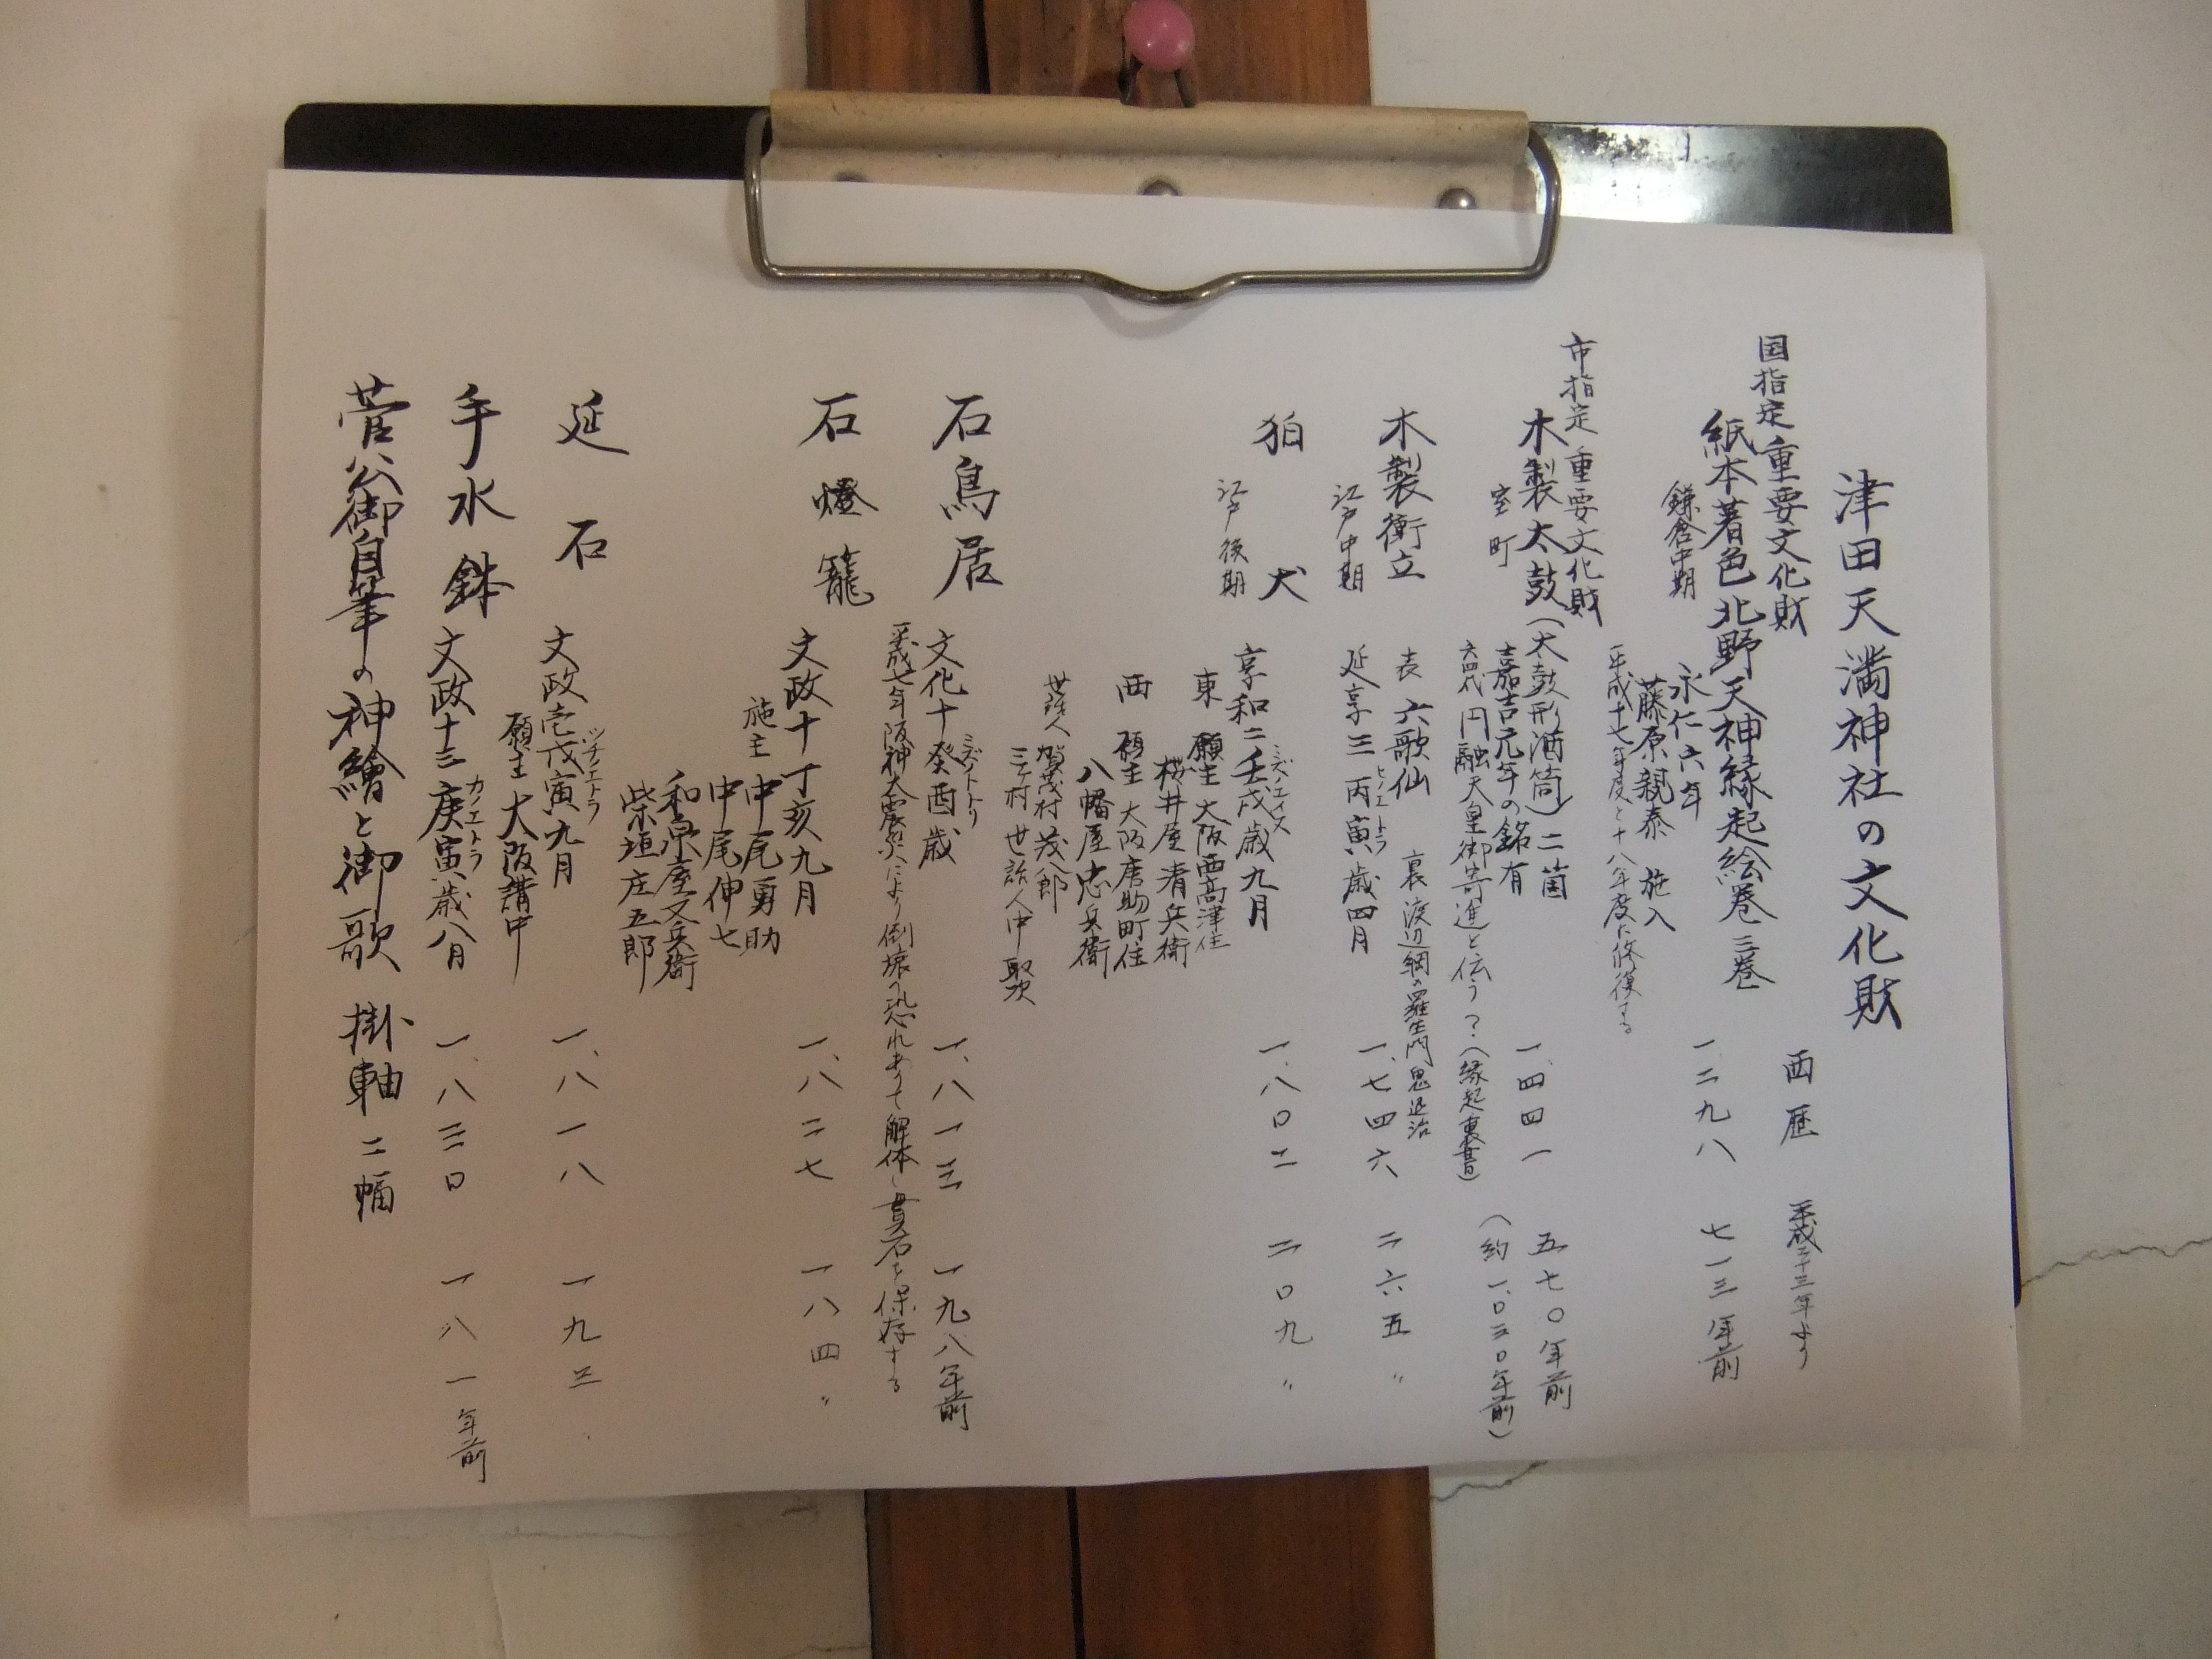 津田天満神社の文化財
西歴 平成二十三年より
国指定重要文化財
紙本著色北野天神縁起絵巻 三巻 一二九八 七一三年前
鎌倉中期 永仁六年
藤原親泰 施入
平成十七年度と十八年度に修復する
市指定重要文化財
木製太鼓(太鼓形酒筒)二箇 一、四四一 五七〇年前
室町 嘉吉元年の銘有
六四代円融天皇御寄進と伝う?(縁起裏書) (約一、〇三〇年前)
木製衝立 表 六歌仙 裏 渡辺綱の羅生門鬼退治
江戸中期 延享三丙寅歳四月 一、七四六 二六五〃
ヒノエトラ
狛犬 享和二壬戌歳九月 一、八〇二 二〇九〃
ミズノエイヌ
江戸後期 東 願主 大阪西高津住
桜井屋清兵衛
西 願主 大阪唐物町住
八幡屋忠兵衛
世話人 賀茂村 茂八郎
三ヶ村 世話人中
石鳥居 文化十癸酉歳 一、八一三 一九八年前
ミズノトトリ
平成七年阪神大震災により倒壊の恐れあって解体し貫石を保存する
石燈籠 文政十丁亥九月 一、八二七 一八四〃
施主 中尾勇助
中尾伸七
和泉屋又兵衛
柴垣庄五郎
延石 文政壱戊寅九月 一、八一八 一九三
ツチノエトラ
願主 大阪講中
手水鉢 文政十三庚寅歳八月 一、八三〇 一八一年前
カノエトラ
菅公御自筆の神繪と御歌 掛軸二幅